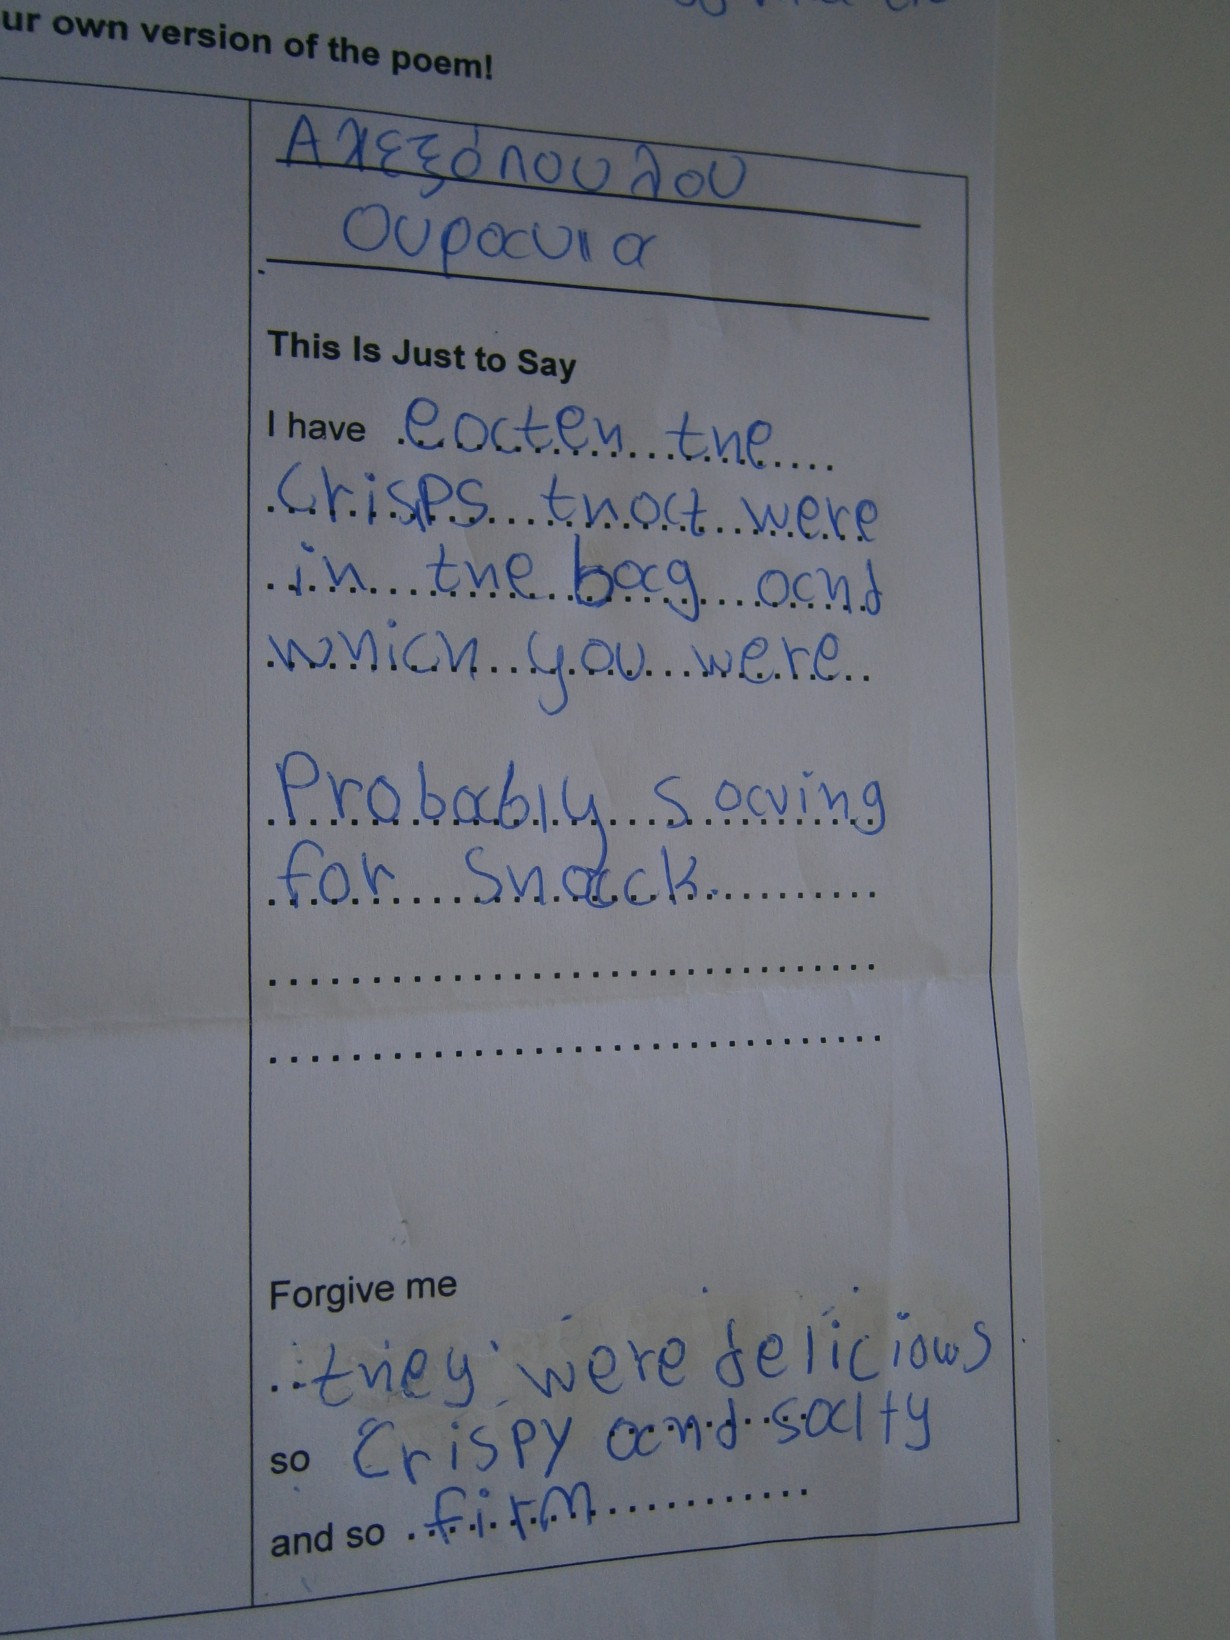 ur own version of the poem!
Αλεξόπουλου
Ουρανια
This Is Just to Say
I have eaten the
Crisps that were
in the bag and
which you were
Probably saving
for snack.
Forgive me
they were delicious
so Crispy and salty
and so firm